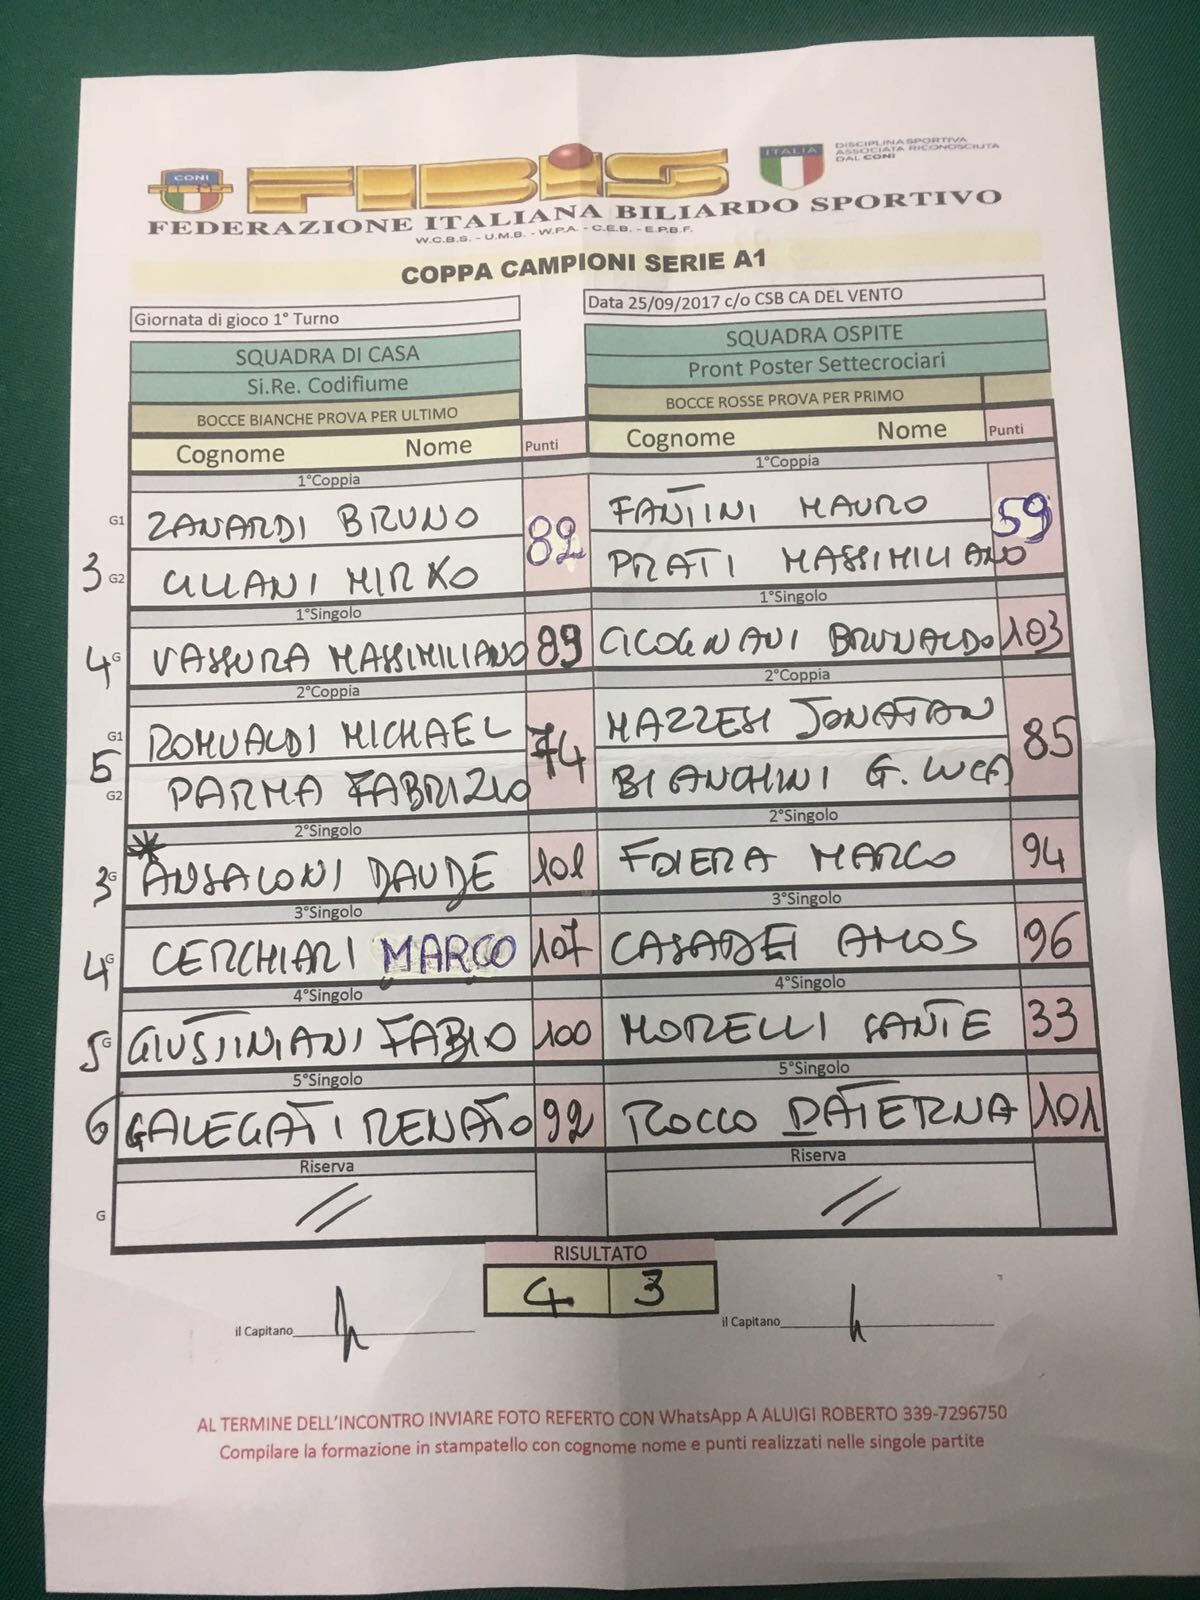 CONI
FIBiS
ITALIA
DISCIPLINA SPORTIVA
ASSOCIATA RICONOSCIUTA
DAL CONI
FEDERAZIONE ITALIANA BILIARDO SPORTIVO
W.C.B.S. - U.M.B. - W.P.A. - C.E.B. - E.P.B.F.
COPPA CAMPIONI SERIE A1
Giornata di gioco 1° Turno
Data 25/09/2017 c/o CSB CA DEL VENTO
SQUADRA DI CASA
SQUADRA OSPITE
Si.Re. Codifiume
Pront Poster Settecrociari
BOCCE BIANCHE PROVA PER ULTIMO
BOCCE ROSSE PROVA PER PRIMO
Cognome Nome Punti Cognome Nome Punti
1°Coppia 1°Coppia
G1 ZANARDI BRUNO 82 FANTINI MAURO 59
3 G2 ULIANI MIRKO PRATI MASSIMILIANO
1°Singolo 1°Singolo
4 G VASSURA MASSIMILIANO 89 CICOGNANI BRUNALDO 103
2°Coppia 2°Coppia
G1 ROMUALDI MICHAEL 74 MAZZESI JONATAN 85
5 G2 PARMA FABRIZIO BIANCHINI G. LUCA
2°Singolo 2°Singolo
3 G * ANSALONI DAVIDE 101 FOIERA MARCO 94
3°Singolo 3°Singolo
4 G CERCHIARI MARCO 107 CASADEI AMOS 96
4°Singolo 4°Singolo
5 G GIUSTINIANI FABIO 100 MORELLI SANTE 33
5°Singolo 5°Singolo
6 GALEGATI RENATO 92 ROCCO DATERNA 101
Riserva Riserva
G // //
RISULTATO
4 3
il Capitano il Capitano
AL TERMINE DELL'INCONTRO INVIARE FOTO REFERTO CON WhatsApp A ALUIGI ROBERTO 339-7296750
Compilare la formazione in stampatello con cognome nome e punti realizzati nelle singole partite